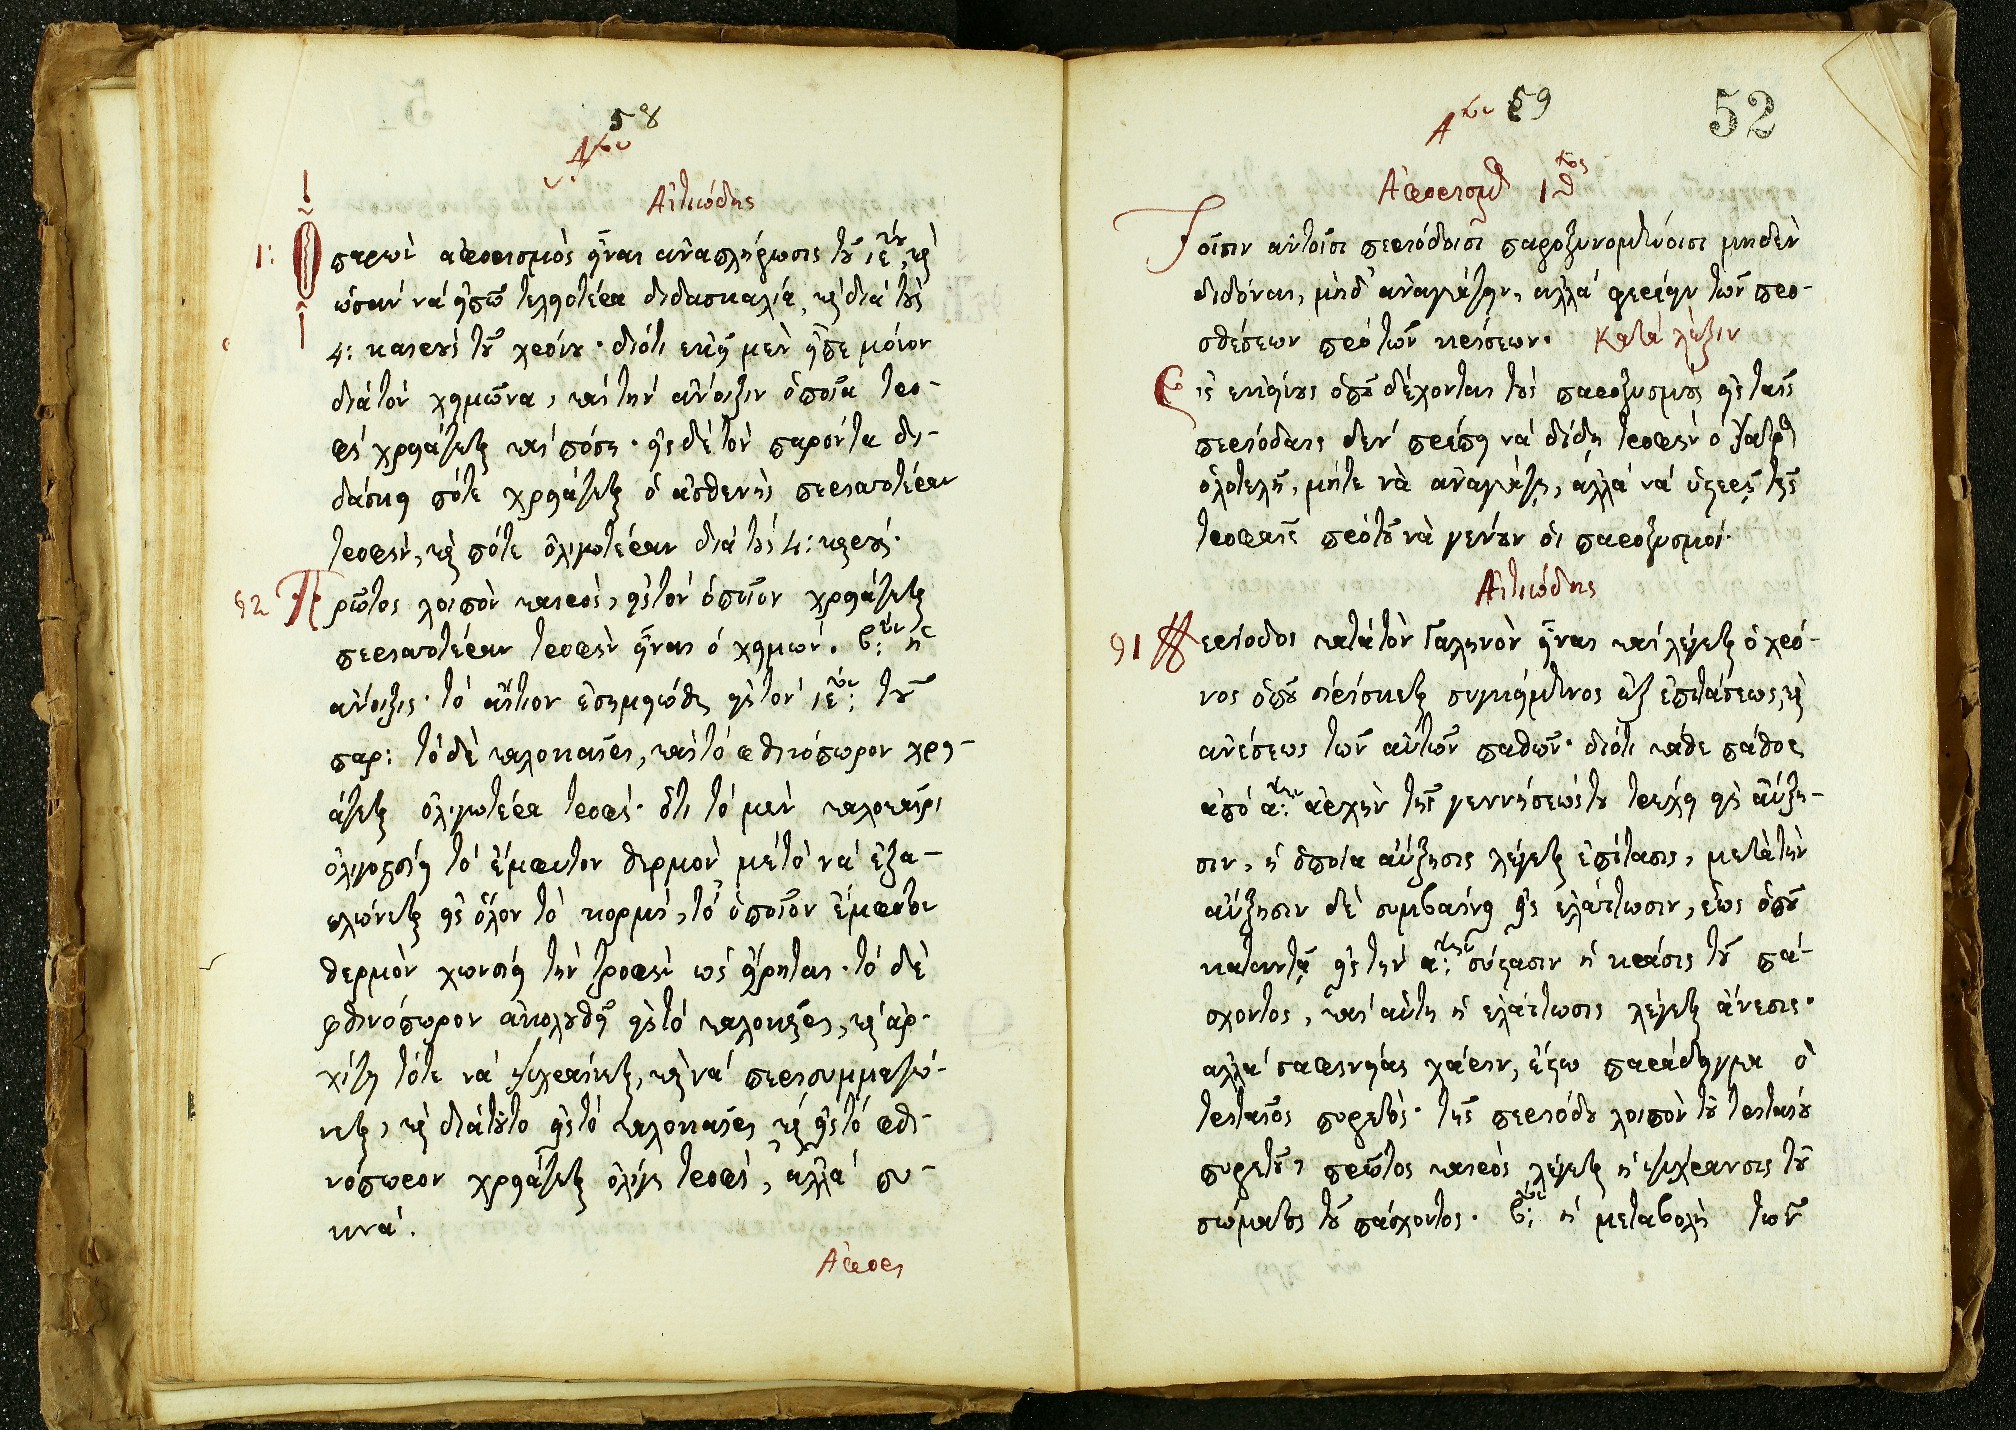 58
Αον
Αἰτιώδης
1: Ὁ παρὼν ἀφορισμὸς εἶναι ἀναπλήρωσις τοῦ ιε: ου, καὶ
ὡσὰν νὰ εἰπῶ τελειοτέρα διδασκαλία, καὶ διὰ τοὺς
4: καιροὺς τοῦ χρόνου· διότι ἐκεῖ μὲν εἶπε μόνον
διὰ τὸν χειμῶνα, καὶ τὴν ἄνοιξιν ὁποῖα τρο-
φὴ χρειάζεται καὶ πόση· εἰς δὲ τὸν παρόντα δι-
δάσκει πότε χρειάζεται ὁ ἀσθενὴς περισσοτέραν
τροφὴν, καὶ πότε ὀλιγωτέραν διὰ τοὺς 4: καιρούς·
Πρῶτος λοιπὸν καιρὸς, εἰς τὸν ὁποῖον χρειάζεται
περισσοτέραν τροφὴν εἶναι ὁ χειμών. β: ον ἡ
ἄνοιξις· τὸ αἴτιον ἐσημειώθη εἰς τὸν ιε: ον τοῦ
παρ: τὸ δὲ καλοκαῖρι, καὶ τὸ φθινόπωρον χρει-
άζεται ὀλιγωτέρα τροφή· ὅτι τὸ μὲν καλοκαῖρι
ὀλιγοστεύει τὸ ἔμφυτον θερμὸν μὲ τὸ νὰ ἐξα-
πλώνεται εἰς ὅλον τὸ κορμὶ, τὸ ὁποῖον ἔμφυτον
θερμὸν χωνεύει τὴν τροφὴν ὡς εἴρηται· τὸ δὲ
φθινόπωρον ἀκολουθεῖ εἰς τὸ καλοκαῖρι, καὶ ἀρ-
χίζει τότε νὰ ψυχραίνεται, καὶ νὰ περισυμμαζώ-
νεται, καὶ διὰ τοῦτο εἰς τὸ καλοκαῖρι καὶ εἰς τὸ φθι-
νόπωρον χρειάζεται ὀλίγη τροφὴ, ἀλλὰ συ-
χνά.
Ἀφορι
Αον 59
52
Ἀφορισμὸς ιθ: τος
Τοῖσιν αὐτοῖσι περιόδοισι παροξυνομένοισι μηδὲν
διδόναι, μηδ' ἀναγκάζειν, ἀλλὰ φερέειν τῶν προ-
σθεσέων πρὸ τῶν κρίσεων. Κατὰ λέξιν
Εἰς ἐκείνους ὁποῦ δέχονται τοὺς παροξυσμοὺς εἰς ταῖς
περίοδαις δὲν πρέπει νὰ δίδῃ τροφὴν ὁ Ἰατρὸς
ὁλοτελῆ, μήτε νὰ ἀναγκάζῃ, ἀλλὰ νὰ ὑστερῇ ταῖς
τροφαῖς πρὸ τοῦ νὰ γενοῦν οἱ παροξυσμοί·
Αἰτιώδης
91 Περίοδος κατὰ τὸν Γαληνὸν εἶναι καὶ λέγεται ὁ χρό-
νος ὁποῦ εὑρίσκεται συγκείμενος ἐξ ἐπιτάσεως, καὶ
ἀνέσεως τῶν αὐτῶν παθῶν· διότι κάθε πάθος
ἀπὸ α: ην ἀρχὴν τῆς γεννήσεώς του τρέχει εἰς αὔξη-
σιν, ἡ ὁποία αὔξησις λέγεται ἐπίτασις, μετὰ τὴν
αὔξησιν δὲ συμβαίνει εἰς ἐλάττωσιν, ἕως ὁποῦ
καταντᾷ εἰς τὴν α: ην σύστασιν ἡ κρᾶσις τοῦ πά-
σχοντος, καὶ αὕτη ἡ ἐλάττωσις λέγεται ἄνεσις·
ἀλλὰ σαφηνείας χάριν, ἔστω παράδειγμα ὁ
τριταῖος πυρετός· τῆς περιόδου λοιπὸν τοῦ τριταίου
πυρετοῦ, πρῶτος καιρὸς λέγεται ἡ ψύχρανσις τοῦ
σώματος τοῦ πάσχοντος. β: ος ἡ μεταβολὴ τῶν